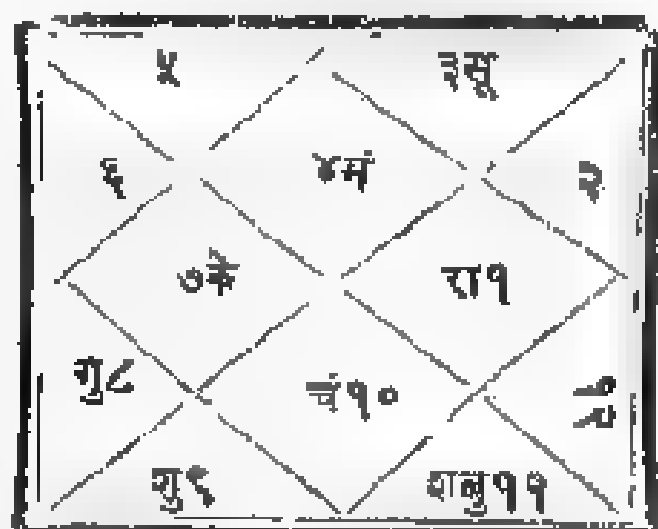 ५ ३सू
६ ४मं २
७के रा१
गु८ चं१० १२
शु९ शबु११